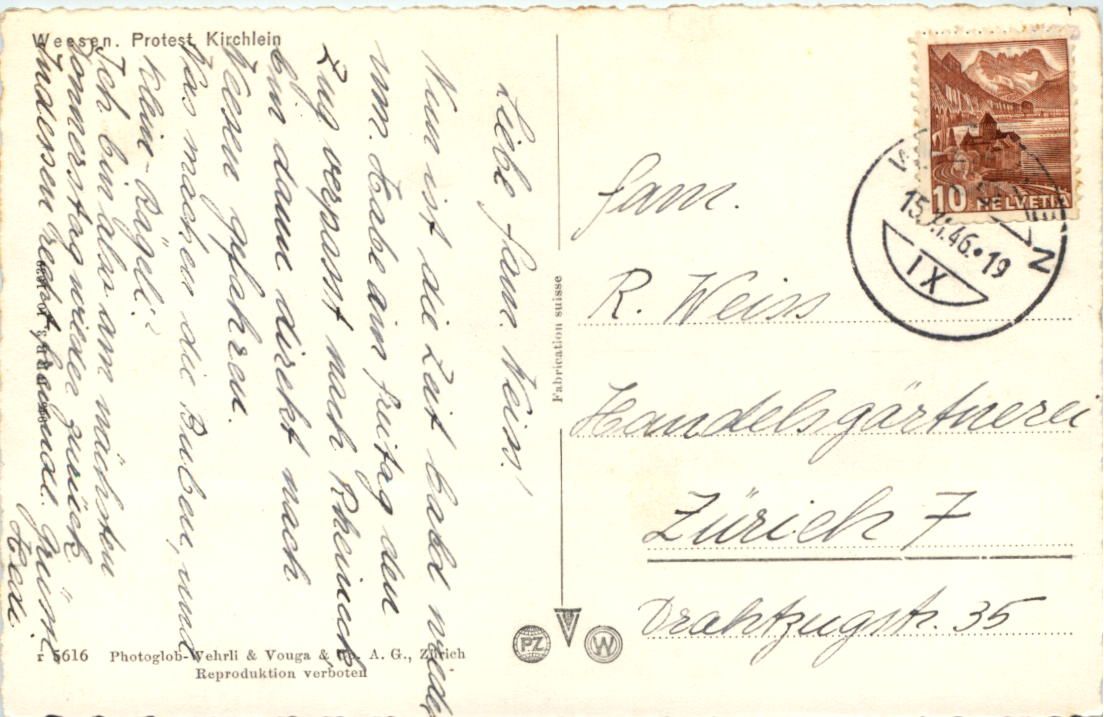 Weesen. Protest. Kirchlein
Liebe Fam. Weiss!
Nun ist die Zeit bald wieder
um. Habe am Freitag den
Zug verpasst nach Rheineck
bin dann direkt nach
Weesen gefahren.
Was machen die Buben, und
Klein-Bägeli?
Ich bin also am nächsten
Donnerstag wieder zurück
Indessen recht freundl. Grüsse
Hedi.
r 5616 Photoglob-Wehrli & Vouga & Co. A. G., Zürich
Reproduktion verboten
Fabrication suisse
PZ
W
10 HELVETIA
15.XI.46.•19
IX
Fam.
R. Weiss
Handelsgärtnerei
Zürich 7
Drahtzugstr. 35